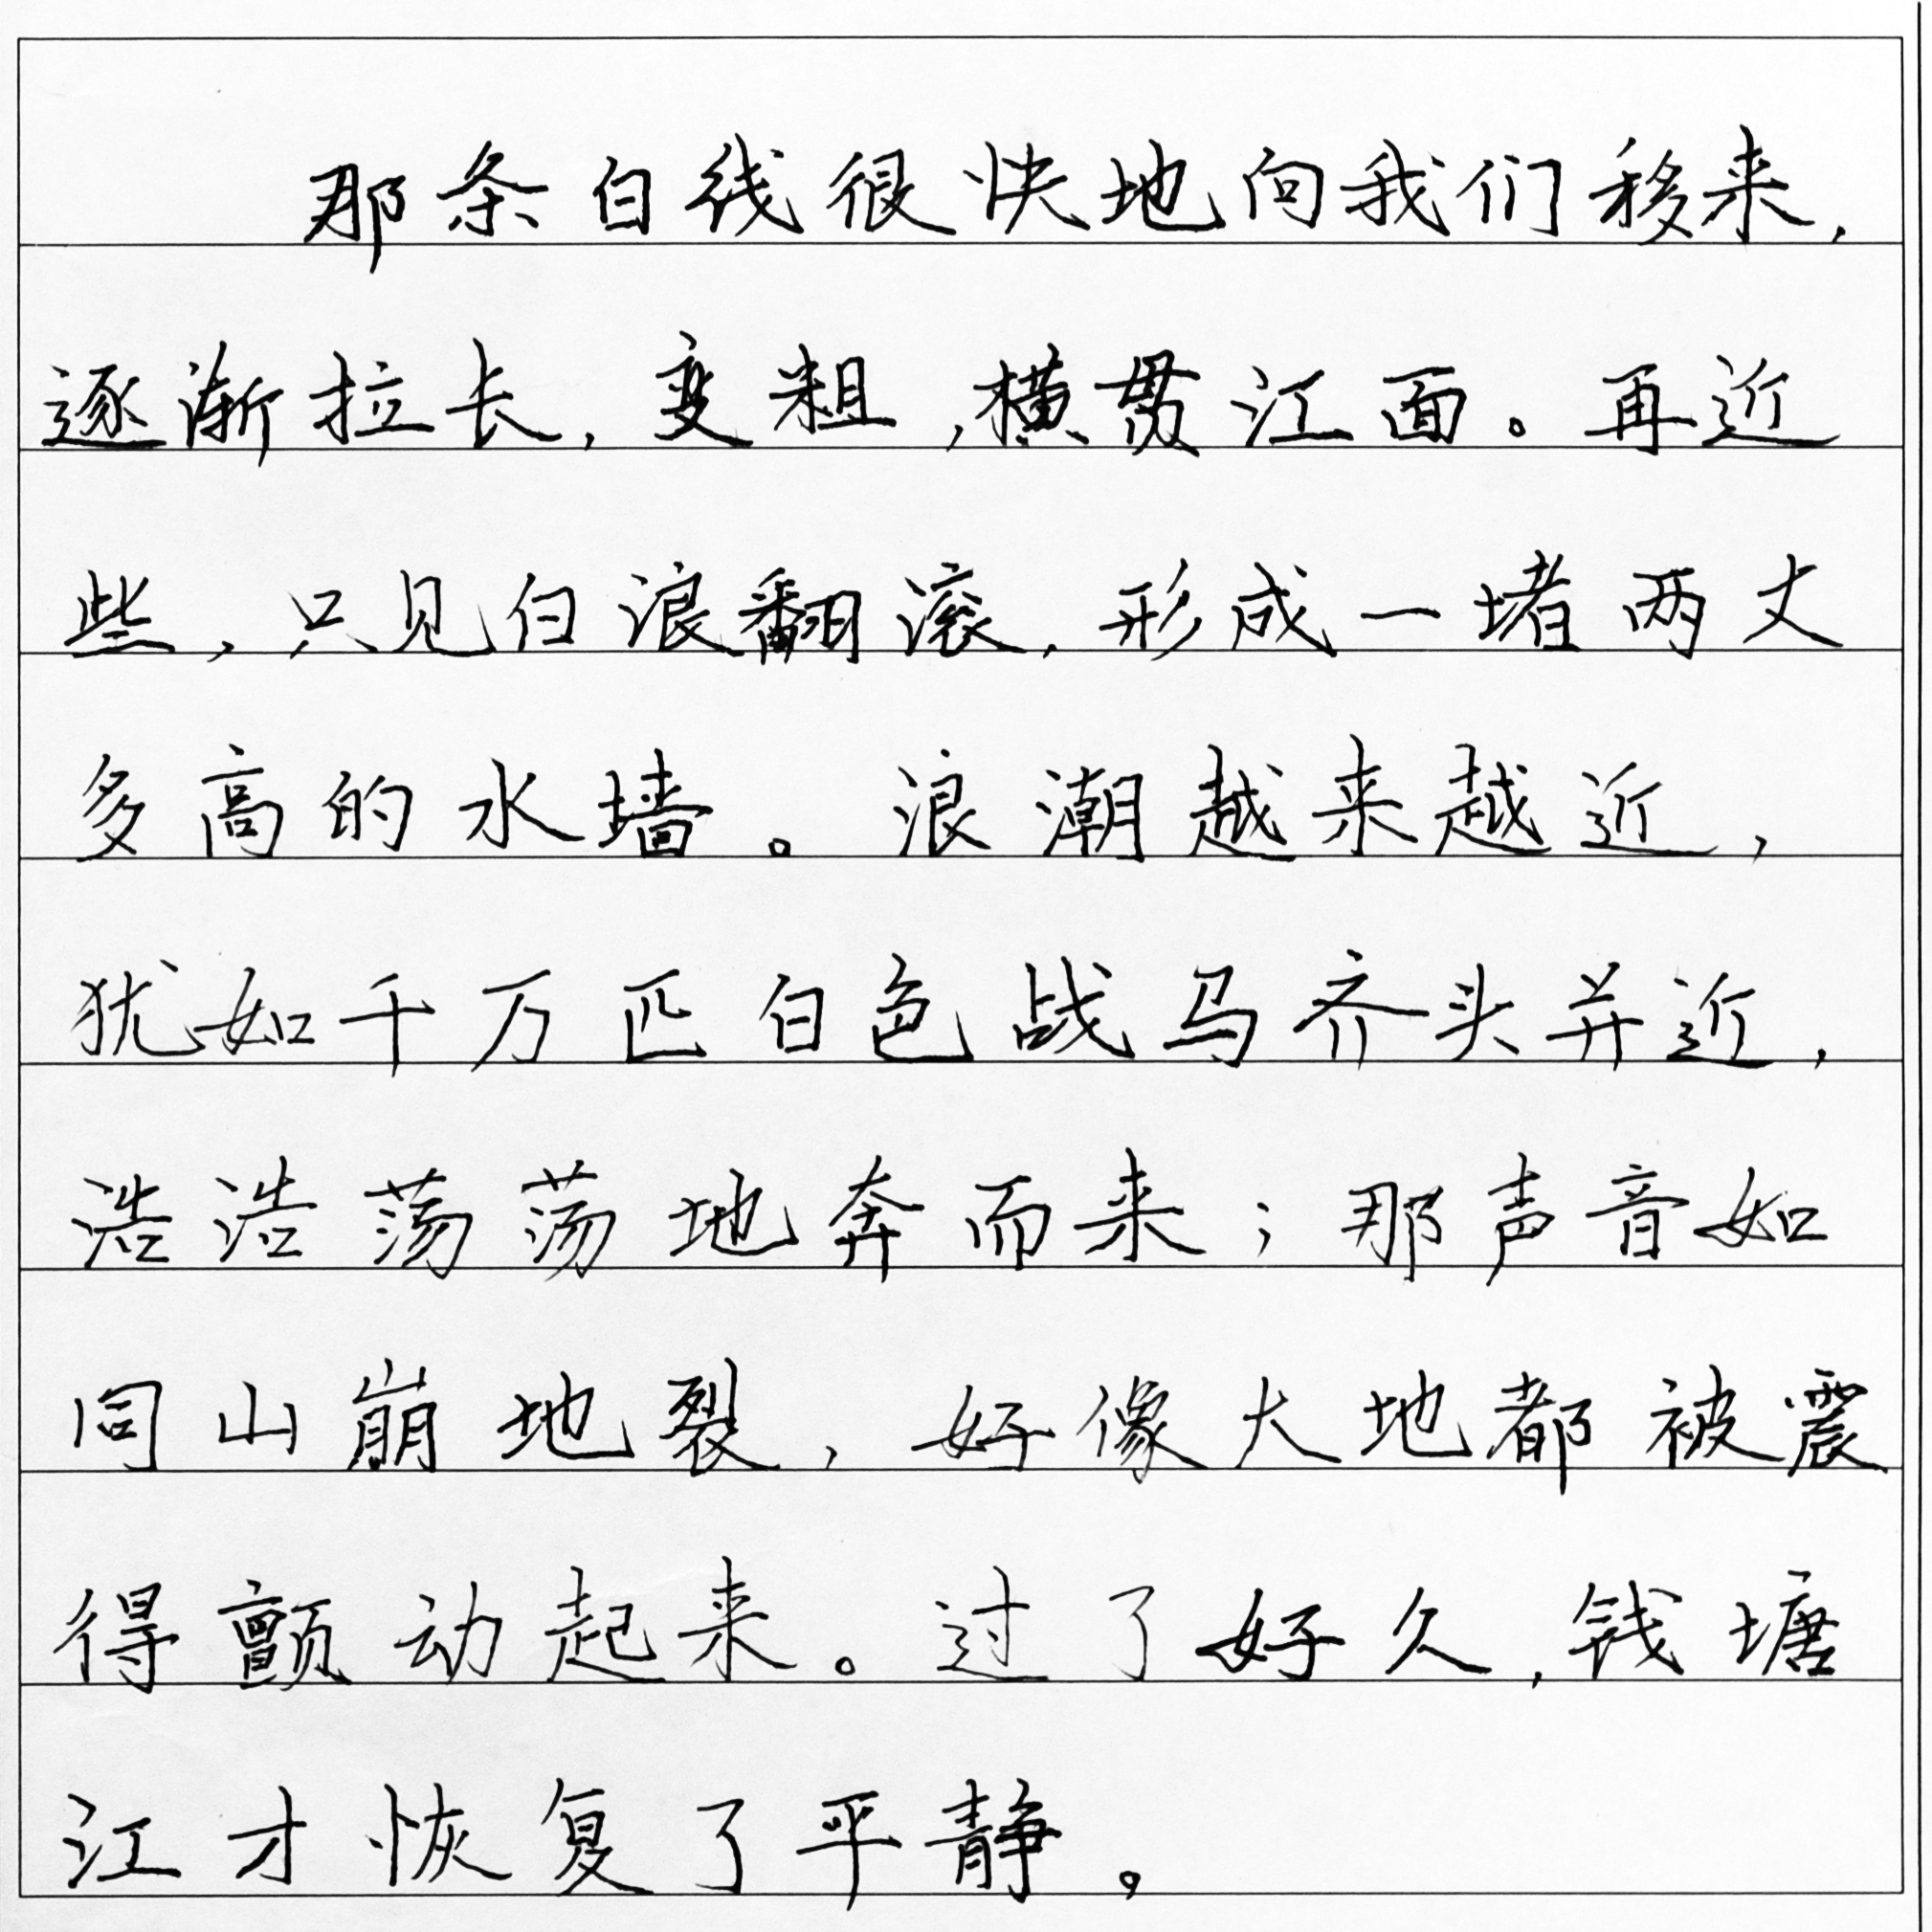 那条白线很快地向我们移来,
逐渐拉长,变粗,横贯江面。再近
些,只见白浪翻滚,形成一堵两丈
多高的水墙。浪潮越来越近,
犹如千万匹白色战马齐头并近,
浩浩荡荡地奔而来;那声音如
同山崩地裂,好像大地都被震
得颤动起来。过了好久,钱塘
江才恢复了平静。